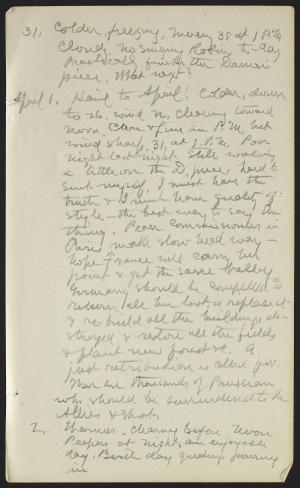 31, Colder, freezing, mercury 35 at 1 P.M.
Cloudy, no singing Robins to-day
Practically finish the Darwin
piece. What next?
April 1. Hail to April! Colder, down
to 26, wind N, clearing toward
noon. Clear & fine in P.M. but
wind sharp. 31, at 1 P.M. Poor
night last night. Still working
a little on the D. piece, hard to
suit myself. I must have the
truth & I must have quality of
style - the best way to say the
thing. Peace commissioners in
Paris make slow head way -
hope France will carry her
point & get the Saare Valley.
Germany should be compelled to
return all her loot or replace it
& re-build all the buildings de-
stroyed & restore all the fields
& plant new forests &c. A
just retribution is all for.
There are thousands of Prussians
who should be surrendered to the
Allies & shot.
2, Warmer. Clearing before noon
Peepers at night, an enjoyable
day. Birth day greetings pouring
in